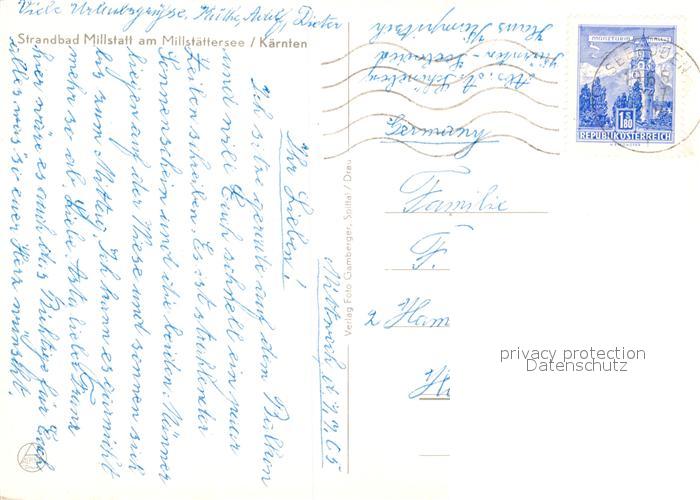 Viele Urlaubsgrüße, Käthe, Adolf, Dieter
Strandbad Millstatt am Millstättersee / Kärnten
Mittwoch d. 7.7.65
Ihr Lieben!
Ich sitze gerade auf dem Balkon
und will Euch schnell ein paar
Zeilen schreiben. Es ist strahlender
Sonnenschein und die beiden Männer
liegen auf der Wiese und sonnen sich
bis zum Mittag. Ich kann es gar nicht
mehr so ab. Liebe
hier wäre es auch das Richtige für Euch
alles was so euer Herz wünscht.
Verlag Foto Gamberger, Spittal / Drau
Abs.: A.
Kärnten
Haus
Germany
Familie
F.
2 Ham
H
MÜNZTURM
1.80
S
REPUBLIK ÖSTERREICH
privacy protection
Datenschutz